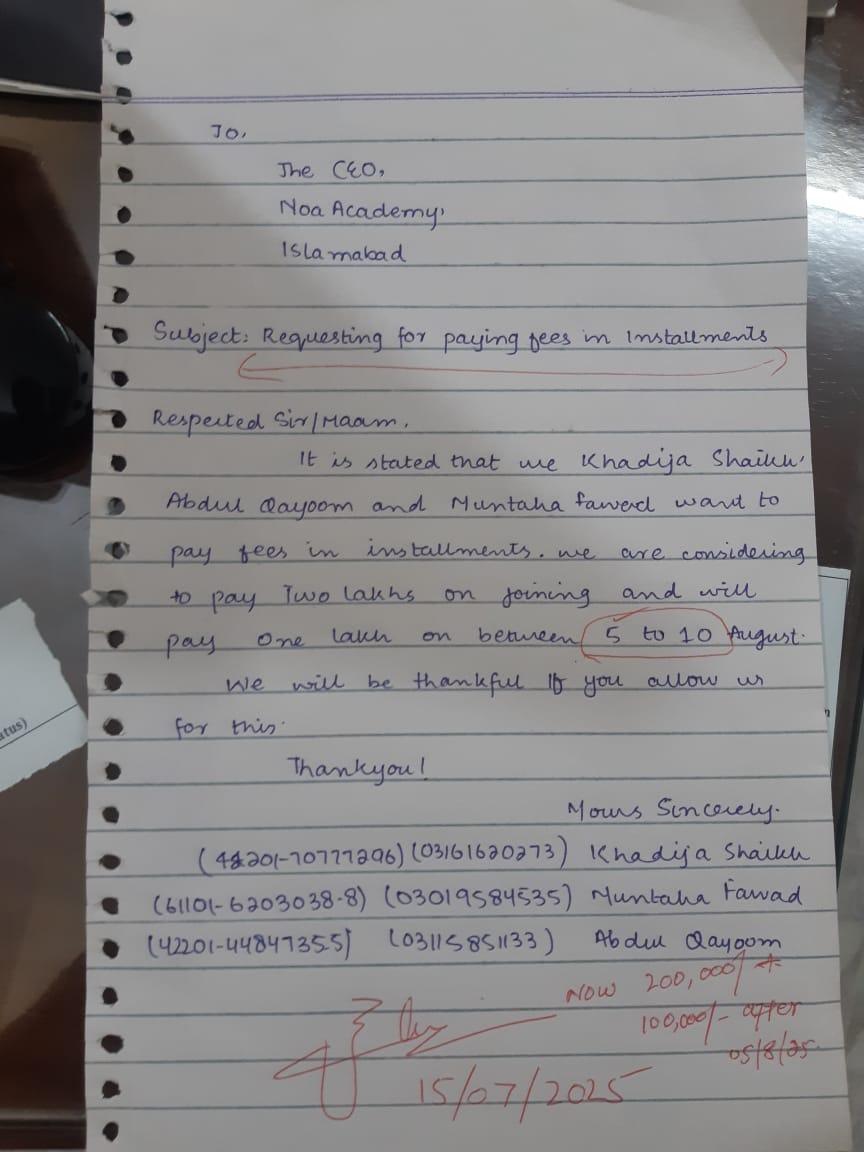 To,
The CEO,
Noa Academy,
Islamabad
Subject: Requesting for paying fees in Installments
Respected Sir/Maam,
It is stated that we Khadija Shaikh,
Abdul Qayoom and Muntaha fawad want to
pay fees in installments. we are considering
to pay Two lakhs on joining and will
pay one lakh on between 5 to 10 August.
We will be thankful If you allow us
for this.
Thankyou!
Yours Sincerely.
(42201-70777296) (03161620273) Khadija Shaikh
(61101-6203038-8) (03019584535) Muntaha Fawad
(42201-44847355) (03115851133) Abdul Qayoom
Now 200,000/ +
100,000/- after
05/8/25.
15/07/2025
atus)